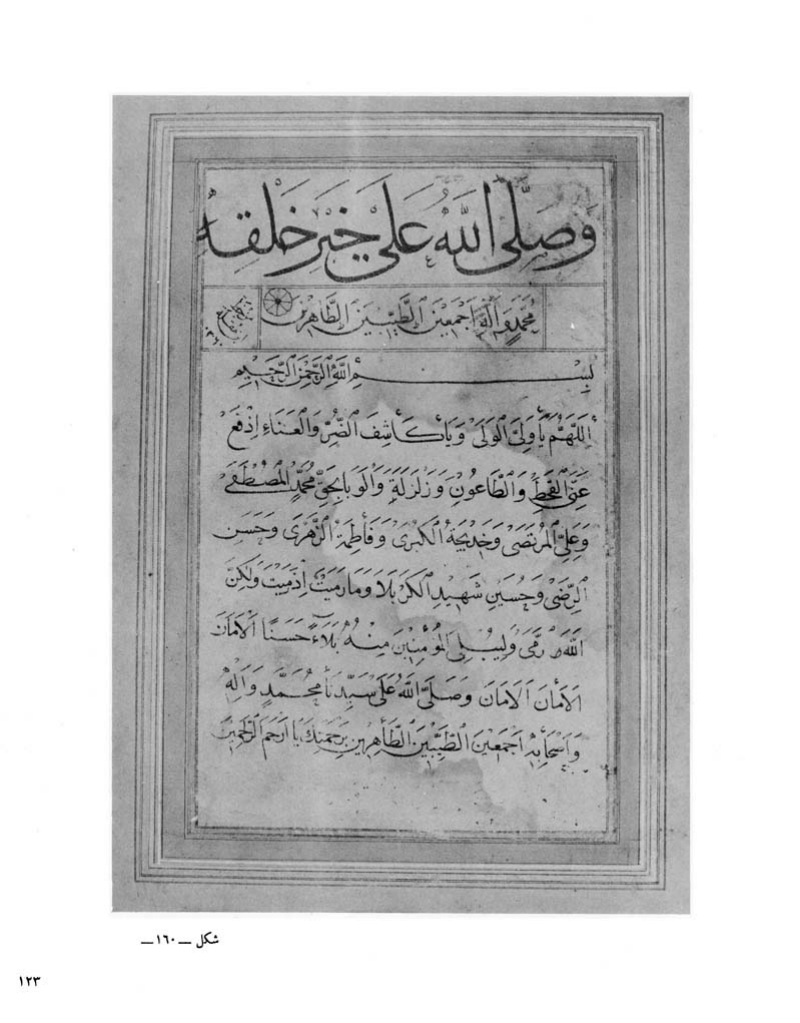 وَصَلَّى اللهُ عَلَى خَيْرِ خَلْقِهِ
مُحَمَّدٍ وَآلِهِ اَجْمَعِينَ الطَّيِّبِينَ الطَّاهِرِينَ
بِسْمِ اللهِ الرَّحْمٰنِ الرَّحِيمِ
اَللّٰهُمَّ يَا وَلِيَّ الْوَلٰى وَيَا كَاشِفَ الضُّرِّ وَالْعَنَاءِ اِدْفَعْ
عَنِّ الْقَحْطِ وَالطَّاعُونِ وَزَلْزَلَةٍ وَالْوَبَا بِحَقِّ مُحَمَّدٍ الْمُصْطَفَى
وَعَلِيِّ الْمُرْتَضَى وَخَدِيجَةِ الْكُبْرَى وَفَاطِمَةِ الزَّهْرَى وَحَسَنِ
الرِّضَى وَحُسَيْنِ شَهِيدِ الْكَرْبَلَا وَمَا رَمَيْتَ اِذْ رَمَيْتَ وَلَكِنَّ
اللهَ رَمَى وَلِيُبْلِيَ الْمُؤْمِنِينَ مِنْهُ بَلَاءً حَسَنًا اَلْاَمَانَ
اَلْاَمَانَ اَلْاَمَانَ وَصَلَّى اللهُ عَلَى سَيِّدِنَا مُحَمَّدٍ وَآلِهِ
وَاَصْحَابِهِ اَجْمَعِينَ الطَّيِّبِينَ الطَّاهِرِينَ بِرَحْمَتِكَ يَا اَرْحَمَ الرَّاحِمِينَ
شكل — ١٦٠ —
١٢٣